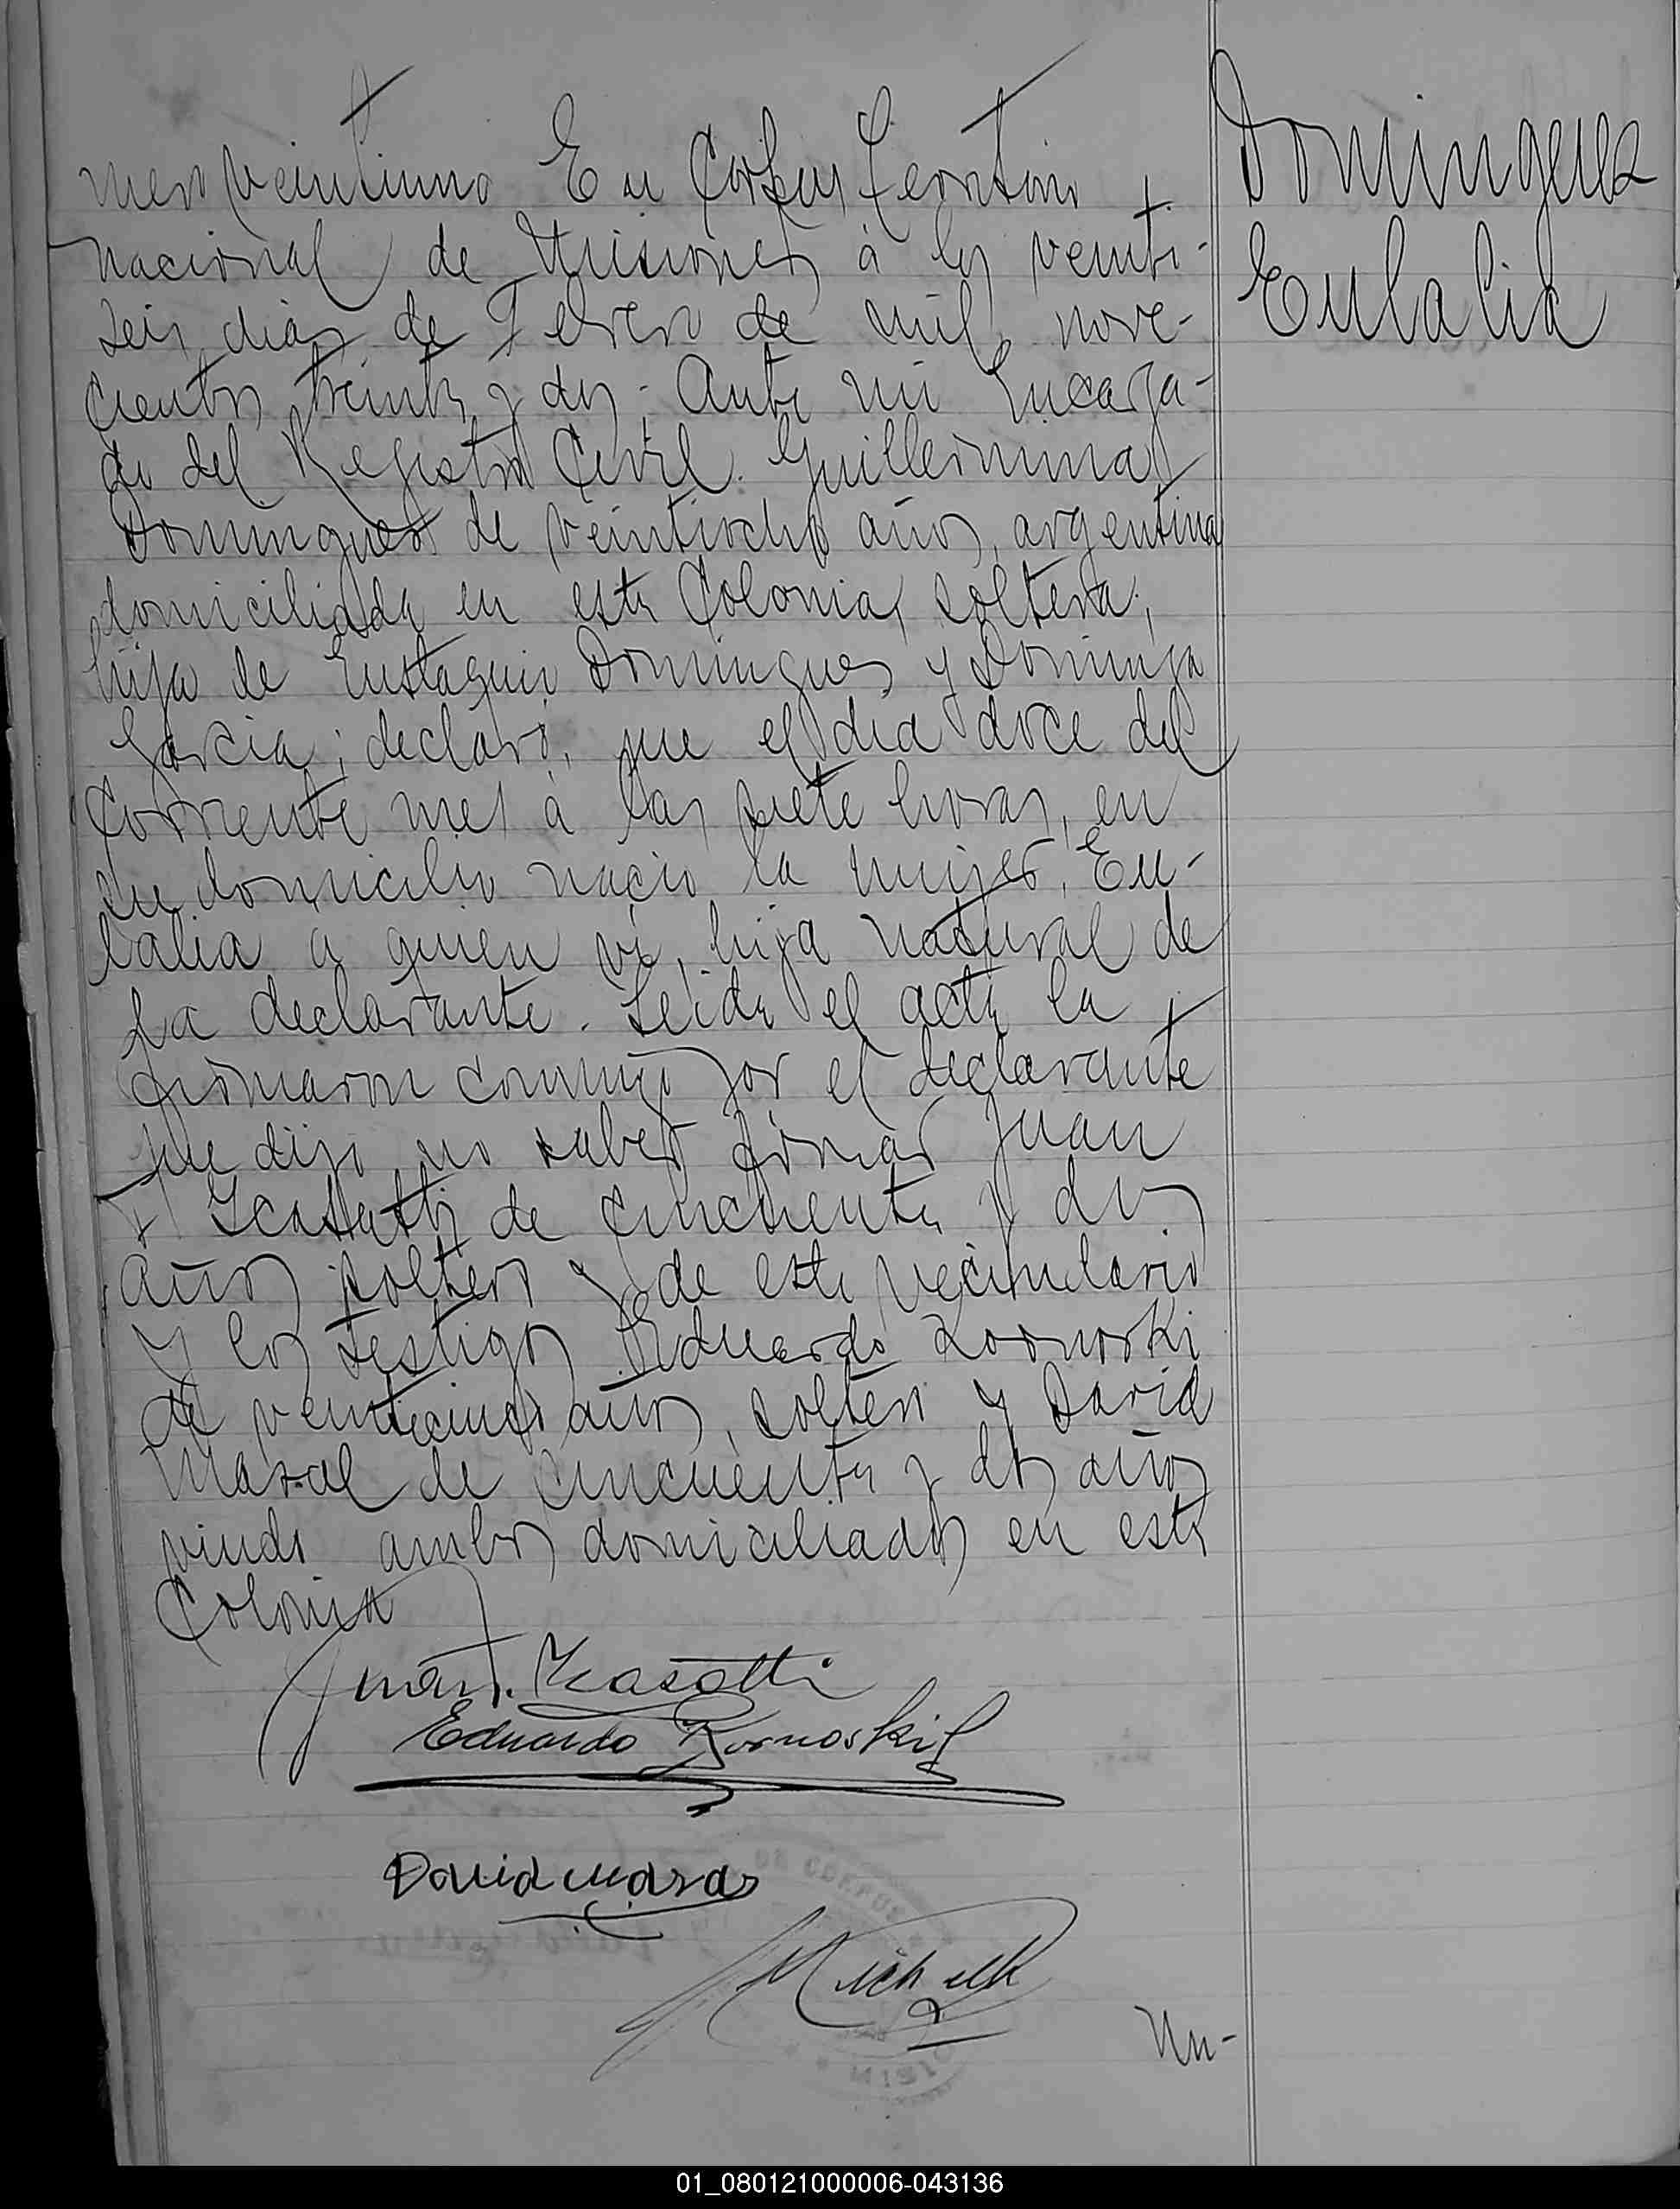 Domingues
Eulalia
mero veintiuno En Corpus Territorio
nacional de Misiones á los veinti-
seis dias de Febrero de mil nove-
cientos treinta y dos. Ante mi Encarga-
do del Registro Civil. Guillermina
Domingues de veintiocho años, argentina
domiciliada en esta Colonia, soltera,
hija de Eustaquio Domingues y Dominga
Garcia; declaró, que el dia doce del
corriente mes á las siete horas, en
su domicilio nació la mujer, Eu-
lalia a quien vi, hija natural de
La declarante. Leida el acta la
firmaron conmigo por el declarante
que dijo no saber firmar Juan
de cincuenta y dos
años soltero y de este vecindario
y los testigos Eduardo Kornoski
de veinticinco años, soltero y David
de cincuenta y dos años
viudo ambos domiciliados en esta
Colonia
Juan
Eduardo Kornoski
David
Nu-
01_080121000006-043136